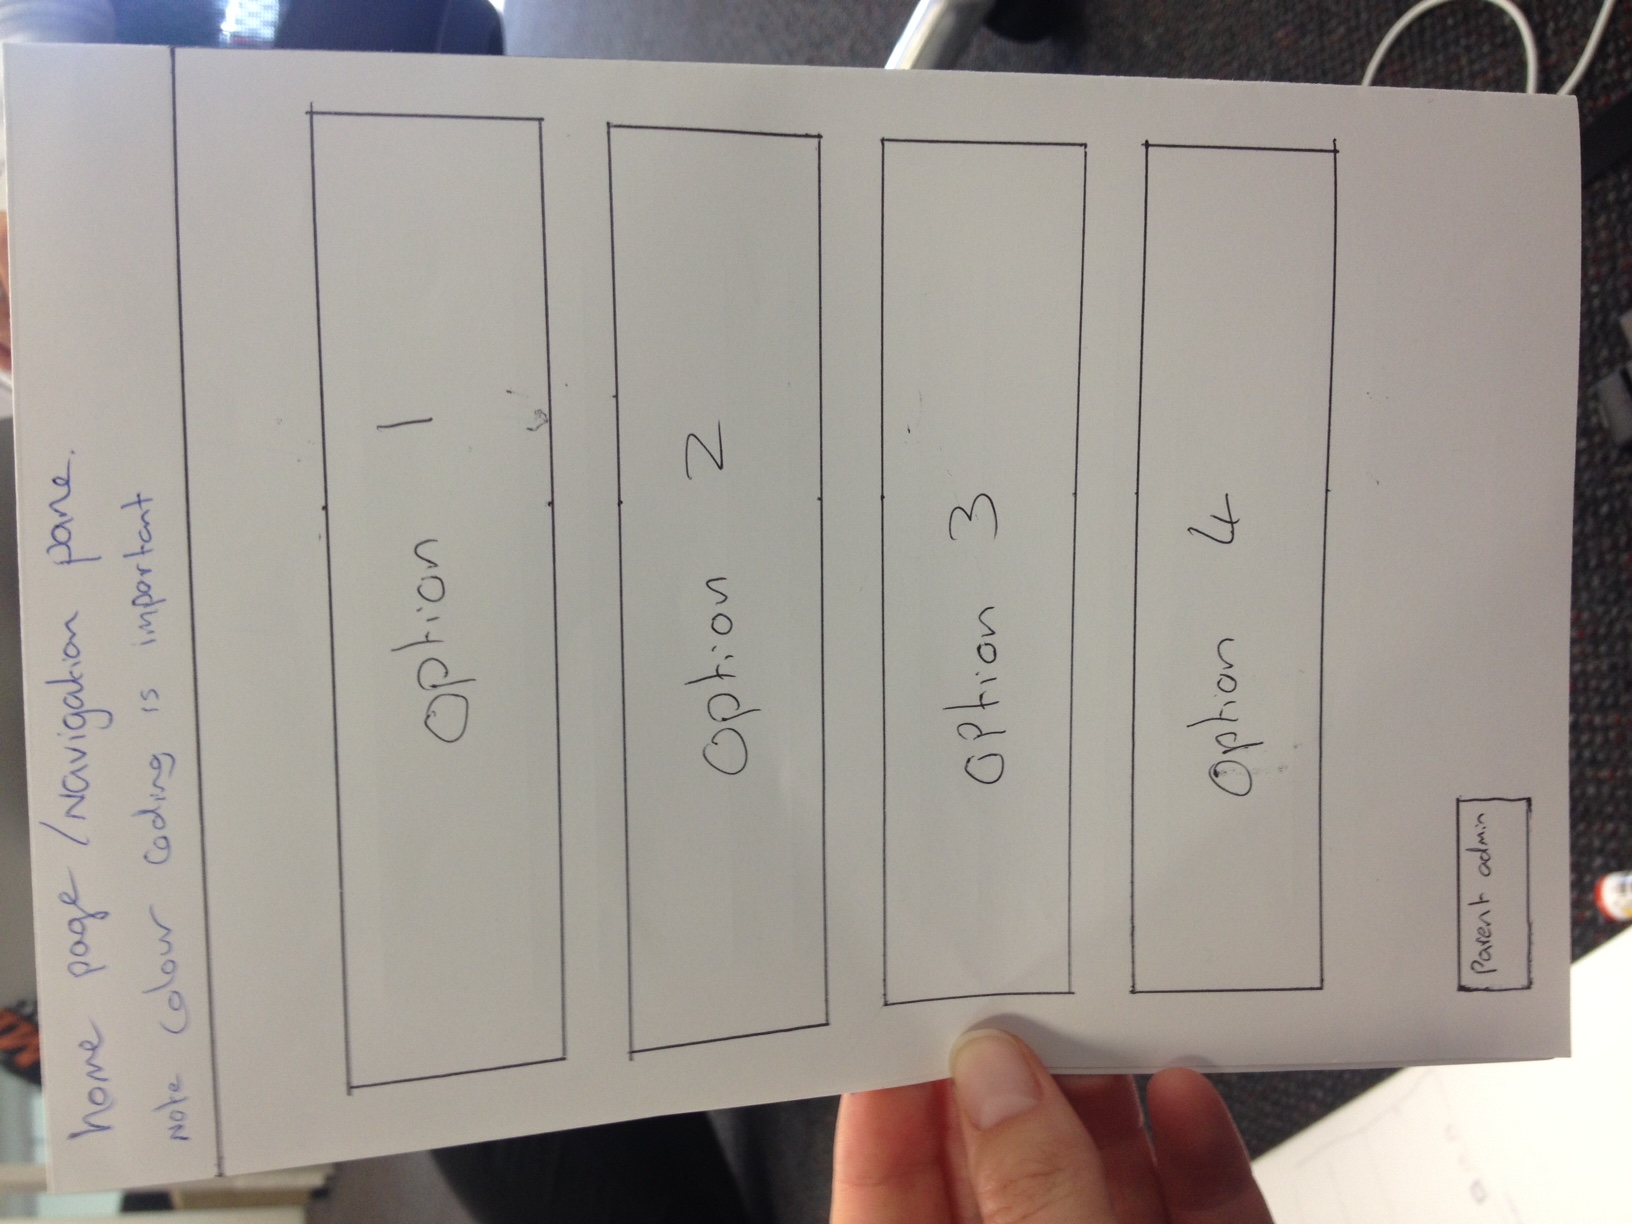 home page / Navigation pane.
Note colour coding is important
option 1
option 2
option 3
option 4
parent admin